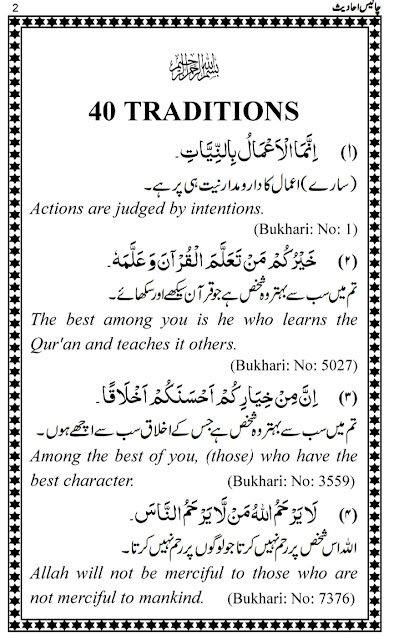 2 چالیس احادیث
بسم اللہ الرحمن الرحیم
40 TRADITIONS
(۱) اِنَّمَا الْاَعْمَالُ بِالنِّیَّاتِ۔
(سارے) اعمال کا دارومدار نیت ہی پر ہے۔
Actions are judged by intentions.
(Bukhari: No: 1)
(۲) خَیْرُکُمْ مَنْ تَعَلَّمَ الْقُرْآنَ وَعَلَّمَهٗ۔
تم میں سب سے بہتر وہ شخص ہے جو قرآن سیکھے اور سکھائے۔
The best among you is he who learns the
Qur'an and teaches it others.
(Bukhari: No: 5027)
(۳) اِنَّ مِنْ خِیَارِکُمْ اَحْسَنَکُمْ اَخْلَاقًا۔
تم میں سب سے بہتر وہ شخص ہے جس کے اخلاق سب سے اچھے ہوں۔
Among the best of you, (those) who have the
best character. (Bukhari: No: 3559)
(۴) لَا یَرْحَمُ اللّٰهُ مَنْ لَّا یَرْحَمُ النَّاسَ۔
اللہ اس شخص پر رحم نہیں کرتا جو لوگوں پر رحم نہیں کرتا۔
Allah will not be merciful to those who are
not merciful to mankind. (Bukhari: No: 7376)